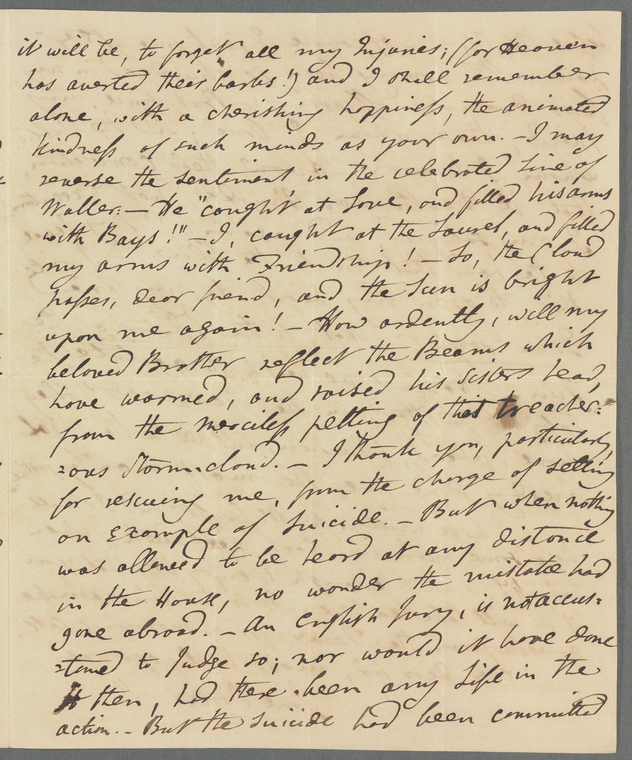 it will be, to forget all my Injuries; (for Heaven
has averted their barbs!) and I shall remember
alone, with a cherishing happiness, the animated
kindness of such minds as your own. – I may
reverse the sentiment in the celebrated Line of
Waller: – He "caught at Love, and filled his arms
with Bays!" – I, caught at the Laurel, and filled
my arms with Friendship! – So, the Cloud
passes, dear friend, and the Sun is bright
upon me again! – How ardently, will my
beloved Brother reflect the Beams which
have warmed, and raised his Sisters head,
from the merciless pelting of that treacher=
=ous Storm-cloud. – I thank you, particularly,
for rescuing me, from the charge of setting
an Example of Suicide. – But when nothing
was allowed to be heard at any distance
in the House, no wonder the mistake had
gone abroad. – An English Jury, is not accus=
=tomed to Judge so; nor would it have done
it then, had there been any Life in the
action. – But the Suicide had been committed